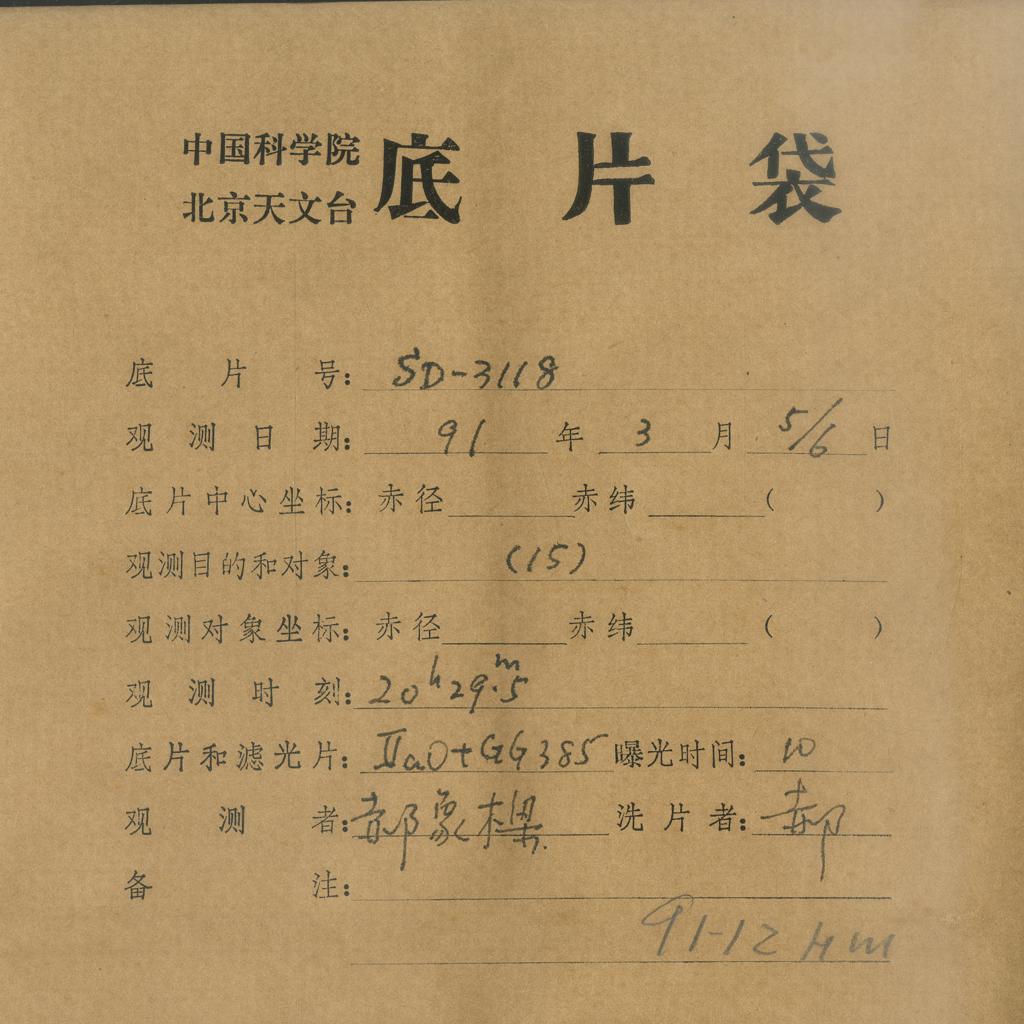 中国科学院
北京天文台
底片袋
底片号：SD-3118
观测日期：91年3月5/6日
底片中心坐标：赤径 赤纬 （ ）
观测目的和对象：（15）
观测对象坐标：赤径 赤纬 （ ）
观测时刻：20h29m.5
底片和滤光片：ⅡaO+GG385 曝光时间：10
观测者：郝象樑 洗片者：郝
备注：
91-12